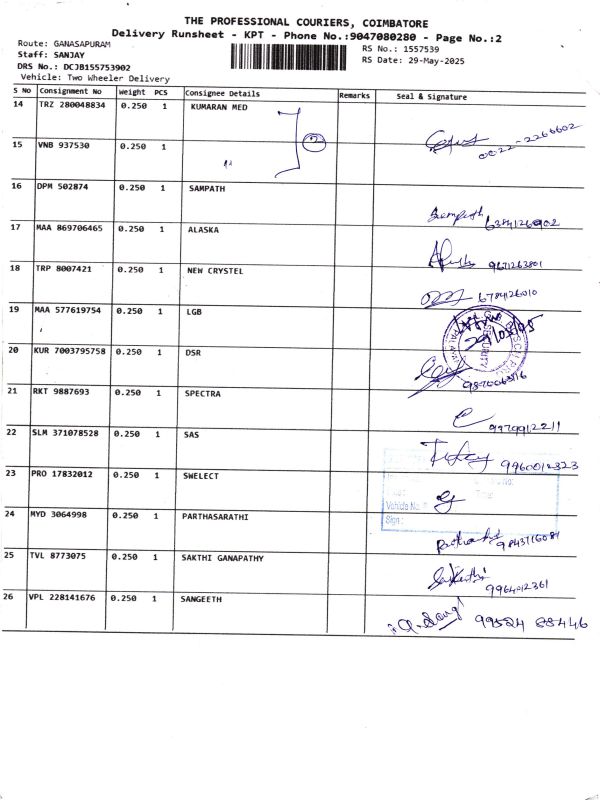 THE PROFESSIONAL COURIERS, COIMBATORE
Delivery Runsheet - KPT - Phone No.:9047080280 - Page No.:2
Route: GANASAPURAM
Staff: SANJAY
DRS No.: DCJB155753902
Vehicle: Two Wheeler Delivery
RS No.: 1557539
RS Date: 29-May-2025
S No Consignment No Weight PCS Consignee Details Remarks Seal & Signature
14 TRZ 280048834 0.250 1 KUMARAN MED
2
0422-2266602
15 VNB 937530 0.250 1
16 DPM 502874 0.250 1 SAMPATH
Sampath
6384126902
17 MAA 869706465 0.250 1 ALASKA
9671263801
18 TRP 8007421 0.250 1 NEW CRYSTEL
6784126010
19 MAA 577619754 0.250 1 LGB
SECURITY
20 KUR 7003795758 0.250 1 DSR
21 RKT 9887693 0.250 1 SPECTRA
9979912211
22 SLM 371078528 0.250 1 SAS
9960012323
23 PRO 17832012 0.250 1 SWELECT
Vehicle No.
Sign :
24 MYD 3064998 0.250 1 PARTHASARATHI
9843716084
25 TVL 8773075 0.250 1 SAKTHI GANAPATHY
Sakthi
9964012361
26 VPL 228141676 0.250 1 SANGEETH
99524 88446